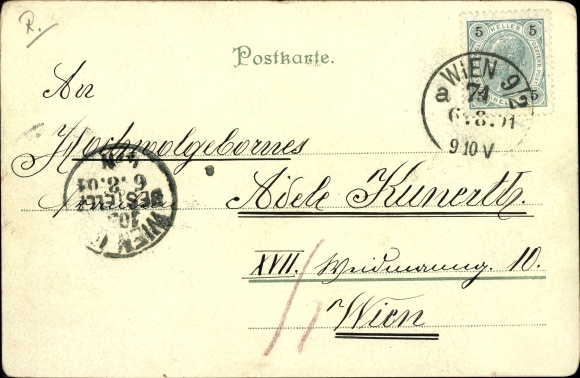 R.
5 HELLER 5
Postkarte.
WIEN 9/2
a 74
6.8.01
9 10 V
An
Hochwolgebornes
Fräulein
Adele Kunerth.
XVII. Weidmanng. 10.
Wien
WIEN
BESTELLT
6.8.01